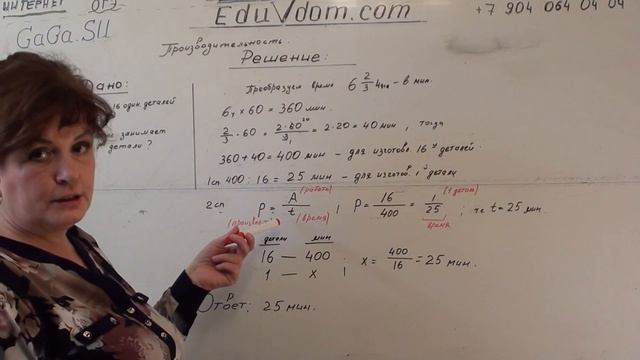 ИНТЕРНЕТ ОГЭ
EduVdom.com
+7 904 064 04 04
GaGa.SU
Производительность.
Решение:
Дано:
16 один деталей
занимает
детали ?
Преобразуем время 6 2/3 часа - в мин.
6ч × 60 = 360 мин.
2/3 · 60 = 2·60²⁰/3₁ = 2·20 = 40 мин, тогда
360 + 40 = 400 мин - для изготовл 16и деталей.
1сп 400 : 16 = 25 мин - для изготов. 1й детали
2сп P = A/t ; P = 16/400 = 1/25 ; т.е. t = 25 мин.
(работа) (1 деталь)
(время) время
детали мин
16 — 400
1 — x
x = 400/16 = 25 мин.
Ответ: 25 мин.